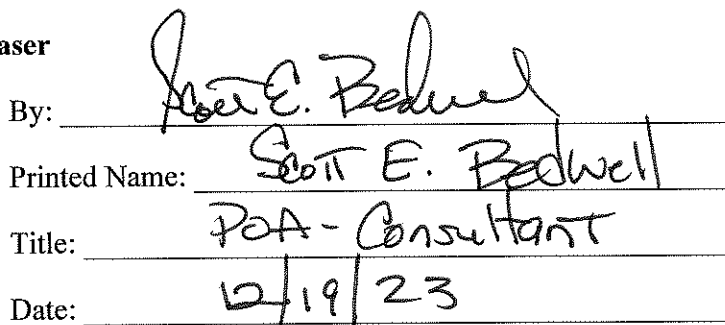 aser
By: Scott E. Bedwell
Printed Name: Scott E. Bedwell
Title: POA - Consultant
Date: 12/19/23